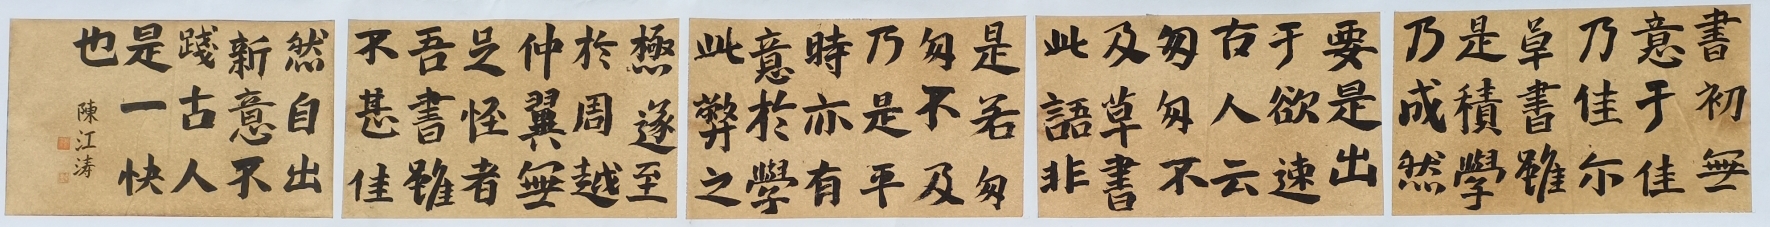 書初無
意于佳
乃佳尔
草書雖
是積學
乃成然
要是出
于欲速
古人云
匆匆不
及草書
此語非
是若匆
匆不及
乃是平
時亦有
意於學
此弊之
極遂至
於周越
仲翼無
足怪者
吾書雖
不甚佳
然自出
新意不
踐古人
是一快
也
陳江涛